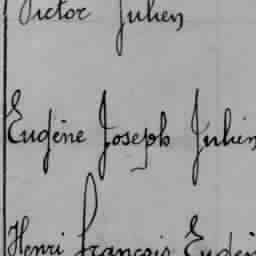 Victor Julien
Eugène Joseph Julien
Henri François Eugène